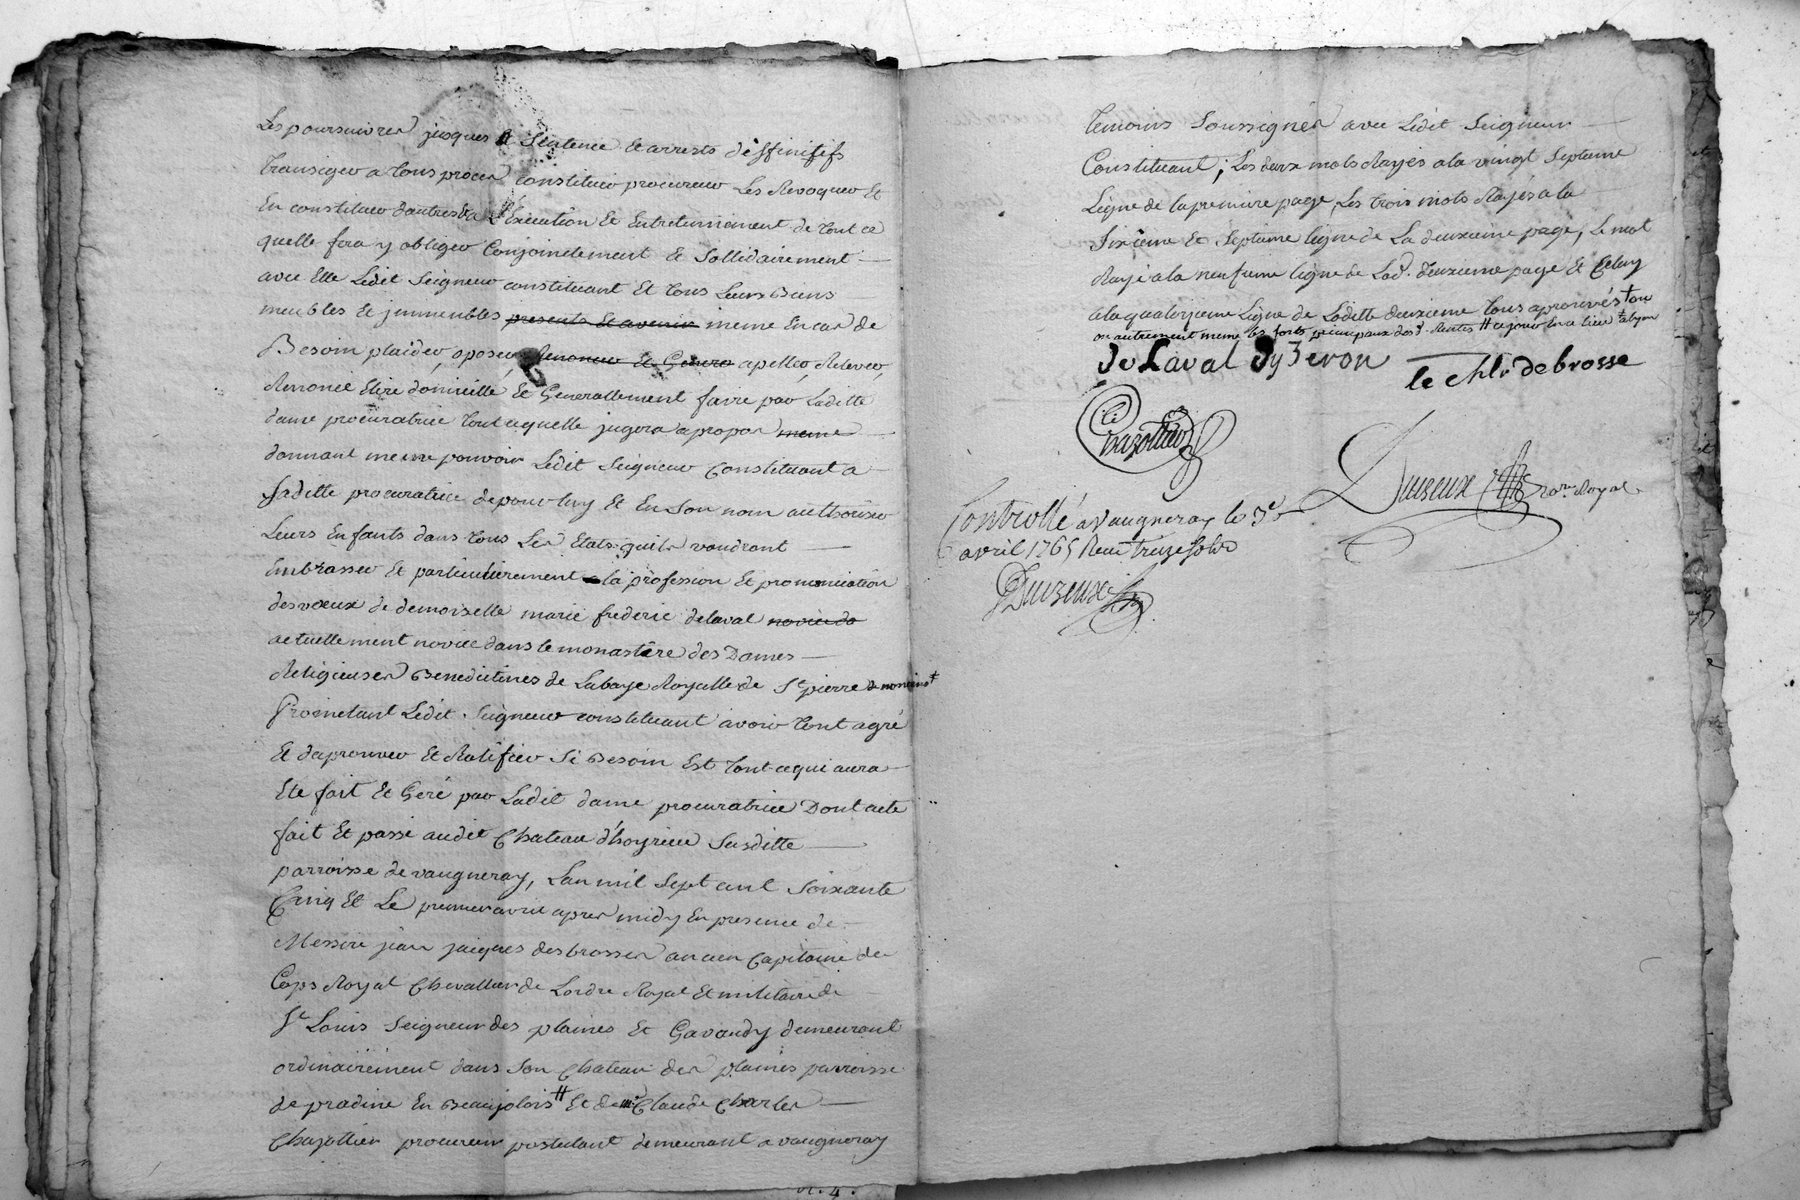 Les poursuivres jusques a Sentence et arrests deffinitifs
transiger a tous proces constituer procureur Les Revoquer Et
En constituer dautres Et a L'Execution Et Entretennement de tout ce
quelle fera y obliger Conjointement Et Sollidairement
avec Elle Ledit Seigneur constituant Et tous Leurs Biens
meubles Et jmmeubles presents Et avenir meme En cas de
Besoin plaider, oposer, Renoncer Et Genera apeller, Relever,
Renoncé Elire domicille, Et Generallement faire par Laditte
dame procuratrice tout cequelle jugera apropos meme
donnant meme pouvoir Ledit Seigneur Constituant a
Saditte procuratrice de pour luy Et En Son nom authoriser
Leurs Enfants dans tous Les Etats quils voudront
Embrasser Et particulierement la profession Et prononciation
des vœux de demoiselle marie frederic delaval novice da
actuellement novice dans le monastère des Dames
Religieuses Benedictines de Labaye Royalle de St pierre de nonains
Prometant Ledit Seigneur constituant avoir tout agré
Et daprouver Et Ratifier Si Besoin Est tout cequi aura
Ete fait Et Geré par Ladit dame procuratrice Dont acte
fait Et passé audit Chateau d'hoyrieu Susditte
parroisse de vaugneray, Lan mil Sept cent Soixante
Cinq Et Le premier avril apres midy En presence de
Messire jean jacques desbrosses ancien Capitaine de
Cops Royal Chevallier de Lordre Royal Et militaire de
St Louis Seigneur des plaines Et Gavandy demeurant
ordinairement dans Son Chateau des plaines parroisse
de pradine En Beaujolois # Et de me Claude Charles
Chazottier procureur postulant demeurant a vaugneray
temoins Soussignés avec Ledit Seigneur
Constituant; Les deux mots Rayés a la vingt Septieme
Ligne de la premiere page, Les trois mots Rayés a la
Sixieme Et Septieme ligne de La deuxieme page, Le mot
Rayé a la neufieme ligne de Lad. deuxieme page Et Celuy
a la quatorzieme Ligne de Laditte deuxieme tous aprouvés + ou
ou autrement meme les forts principaux des d. Rentes # ce jour en ce lieu
de Laval Dyzeron
le Chlr debrosse
Chazottier
Duiseux no.re Royal
Controllé a Vaugneray le 3e
avril 1765 Reçu treize sols
Duiseux